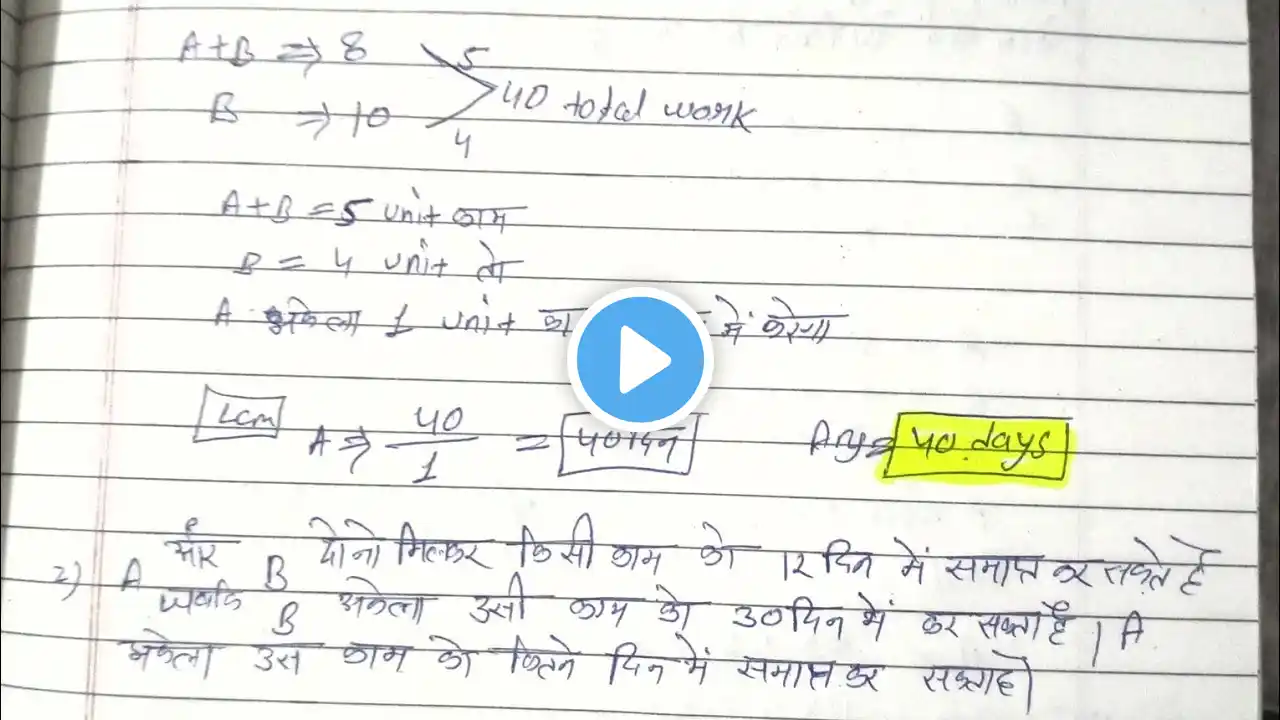 A+B ⇒ 8 5
40 total work
B ⇒ 10 4
A+B = 5 unit काम
B = 4 unit तो
A अकेला 1 unit का में करेगा
Lcm A ⇒ 40/1 = 40 दिन Ans 40 days
2) A और B दोनो मिलकर किसी काम को 12 दिन में समाप्त कर सकते हैं
जबकि B अकेला उसी काम को 30 दिन में कर सकता है । A
अकेला उस काम को कितने दिन में समाप्त कर सकता है।